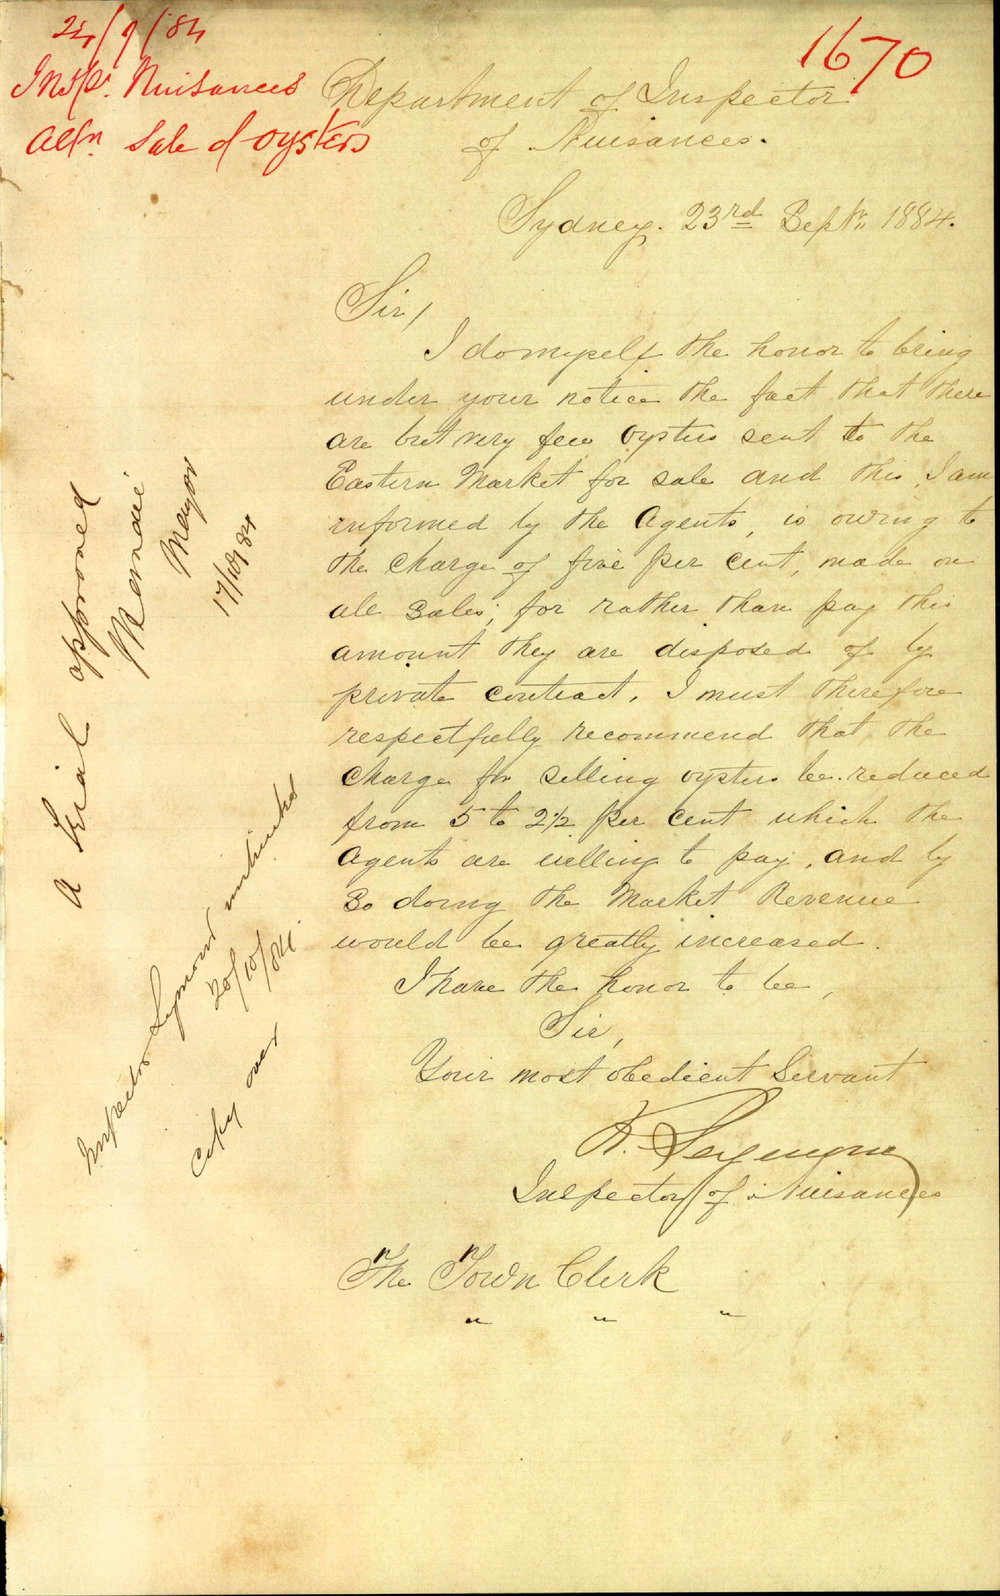 24/9/84
Insp. Nuisances
Sale of oysters
1670
Department of Inspector
of Nuisances.
Sydney. 23rd Sept. 1884.
Sir,
I do myself the honor to bring
under your notice the fact that there
are but very few oysters sent to the
Eastern Market for sale and this, I am
informed by the Agents, is owing to
the charge of five per cent, made on
all sales; for rather than pay this
amount they are disposed of by
private contract. I must therefore
respectfully recommend that the
charge for selling oysters be reduced
from 5 to 2½ per cent which the
Agents are willing to pay, and by
so doing the Market Revenue
would be greatly increased.
I have the honor to be,
Sir,
Your most obedient Servant
R. Seymour
Inspector of Nuisances
The Town Clerk
" " "
A trial approved
Mayor
17/10/84
Inspector Seymour instructed
20/10/84.
over